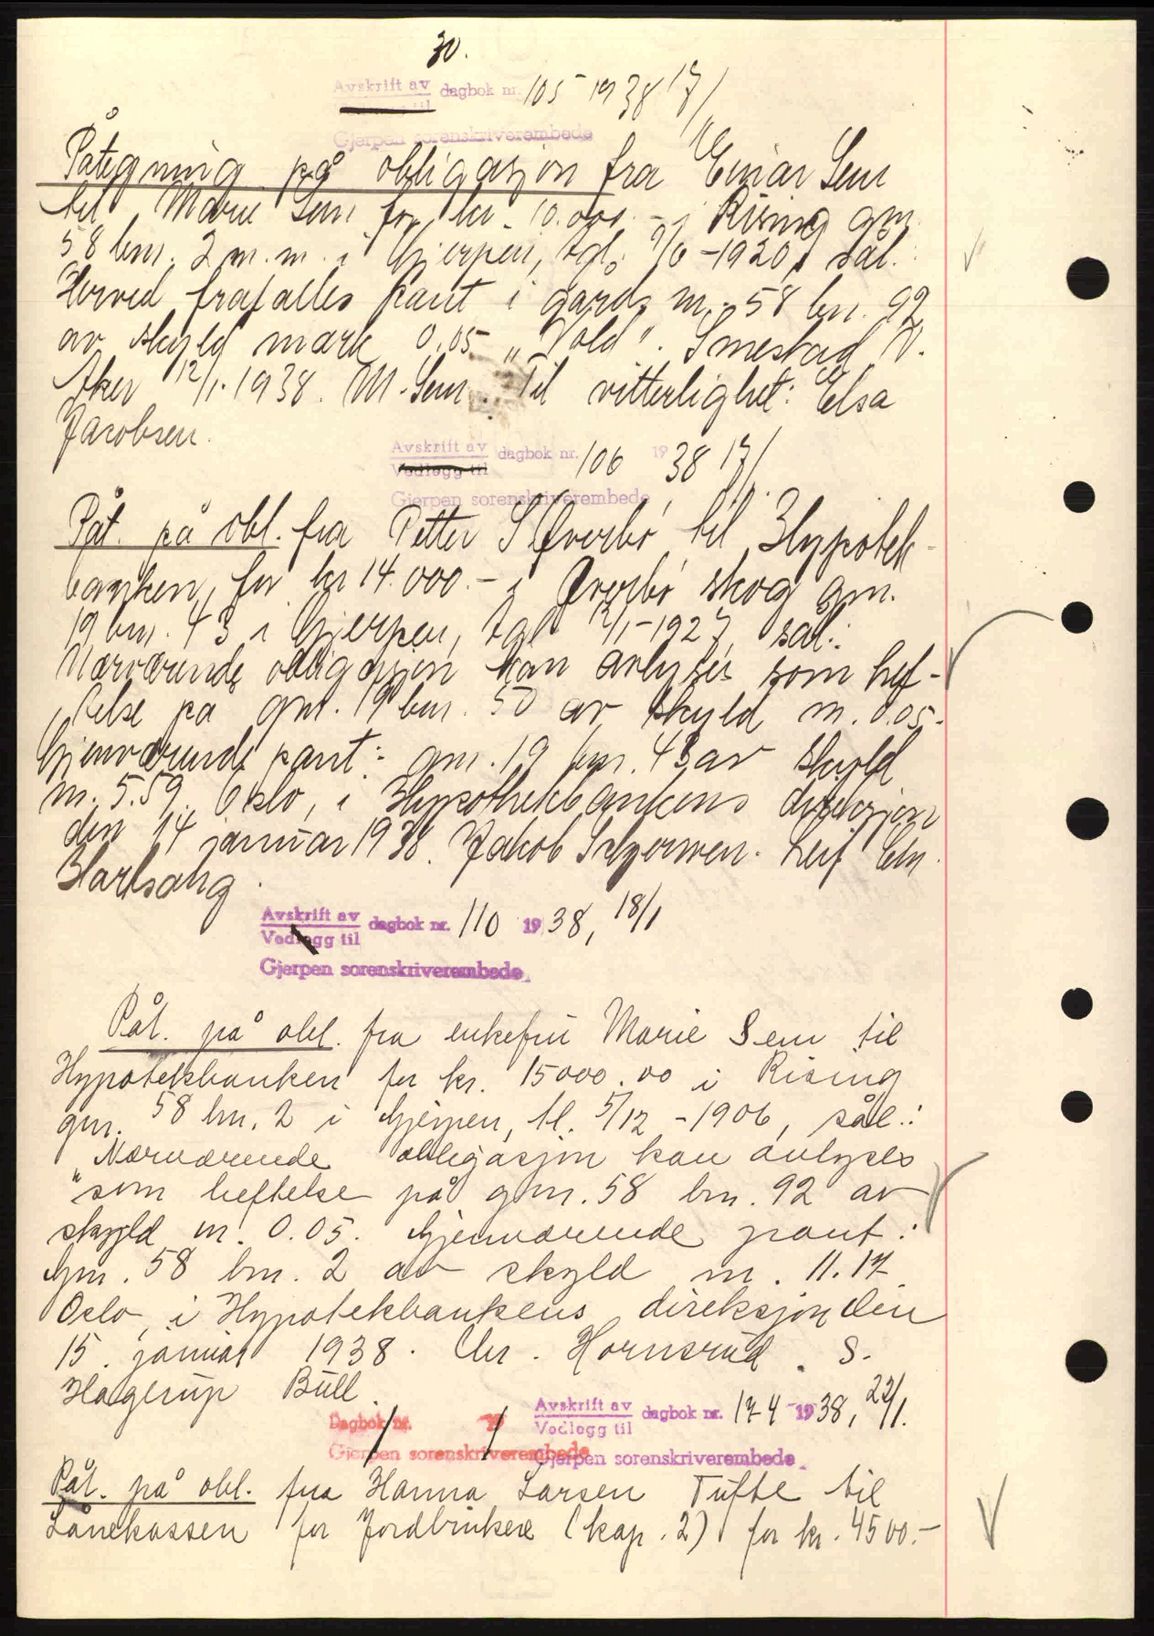 30.
Avskrift av dagbok nr. 105 1938 17/1
Gjerpen sorenskriverembede
Påtegning på obligasjon fra Einar Sem
til Marie Sem for kr. 10.000.- i Rising gnr.
58 bnr. 2 m.m. i Gjerpen, tgl. 9/6-1920, sål.:
Herved frafalles pant i gards nr. 58 bnr. 92
av skyld mark 0.05 "Vold". Smestad V.
Aker 12/1-1938. M. Sem. Til vitterlighet: Elsa
Jacobsen.
Avskrift av dagbok nr. 106 1938 17/1
Vedlegg til
Gjerpen sorenskriverembede
Påt. på obl. fra Petter S. Øverbø til Hypotek-
banken for kr 14.000.- i Øverbø skog gnr.
19 bnr. 43 i Gjerpen, tgl. 12/1-1927, sål.:
Nærværende obligasjon kan avlyses som hef-
telse på gnr. 19 bnr. 50 av skyld m. 0.05.-
Gjenværende pant: gnr. 19 bnr. 43 av skyld
m. 5.59. Oslo, i Hypothekbankens direksjon
den 14 januar 1938. Jakob Leif Em.
Hartsang.
Avskrift av dagbok nr. 110 1938, 18/1
Vedlegg til
Gjerpen sorenskriverembede
Påt. på obl. fra enkefru Marie Sem til
Hypotekbanken for kr. 15000.00 i Rising
gnr. 58 bnr. 2 i Gjerpen, tl. 5/12-1906, sål.:
"Nærværende obligasjon kan avlyses
som heftelse på gnr. 58 bnr. 92 av
skyld m. 0.05. Gjenværende pant:
Gnr. 58 bnr. 2 av skyld m. 11.17.
Oslo, i Hypotekbankens direksjon den
15. januar 1938. Chr. Hornsrud. S.
Hagerup Bull.
Avskrift av dagbok nr. 174 1938, 22/1.
Vedlegg til
Dagbok nr. 19
Gjerpen sorenskriverembede
Gjerpen sorenskriverembede
Påt. på obl. fra Hanna Larsen Tufte til
Lånekassen for Jordbrukere (kap. 2) for kr. 4500.-